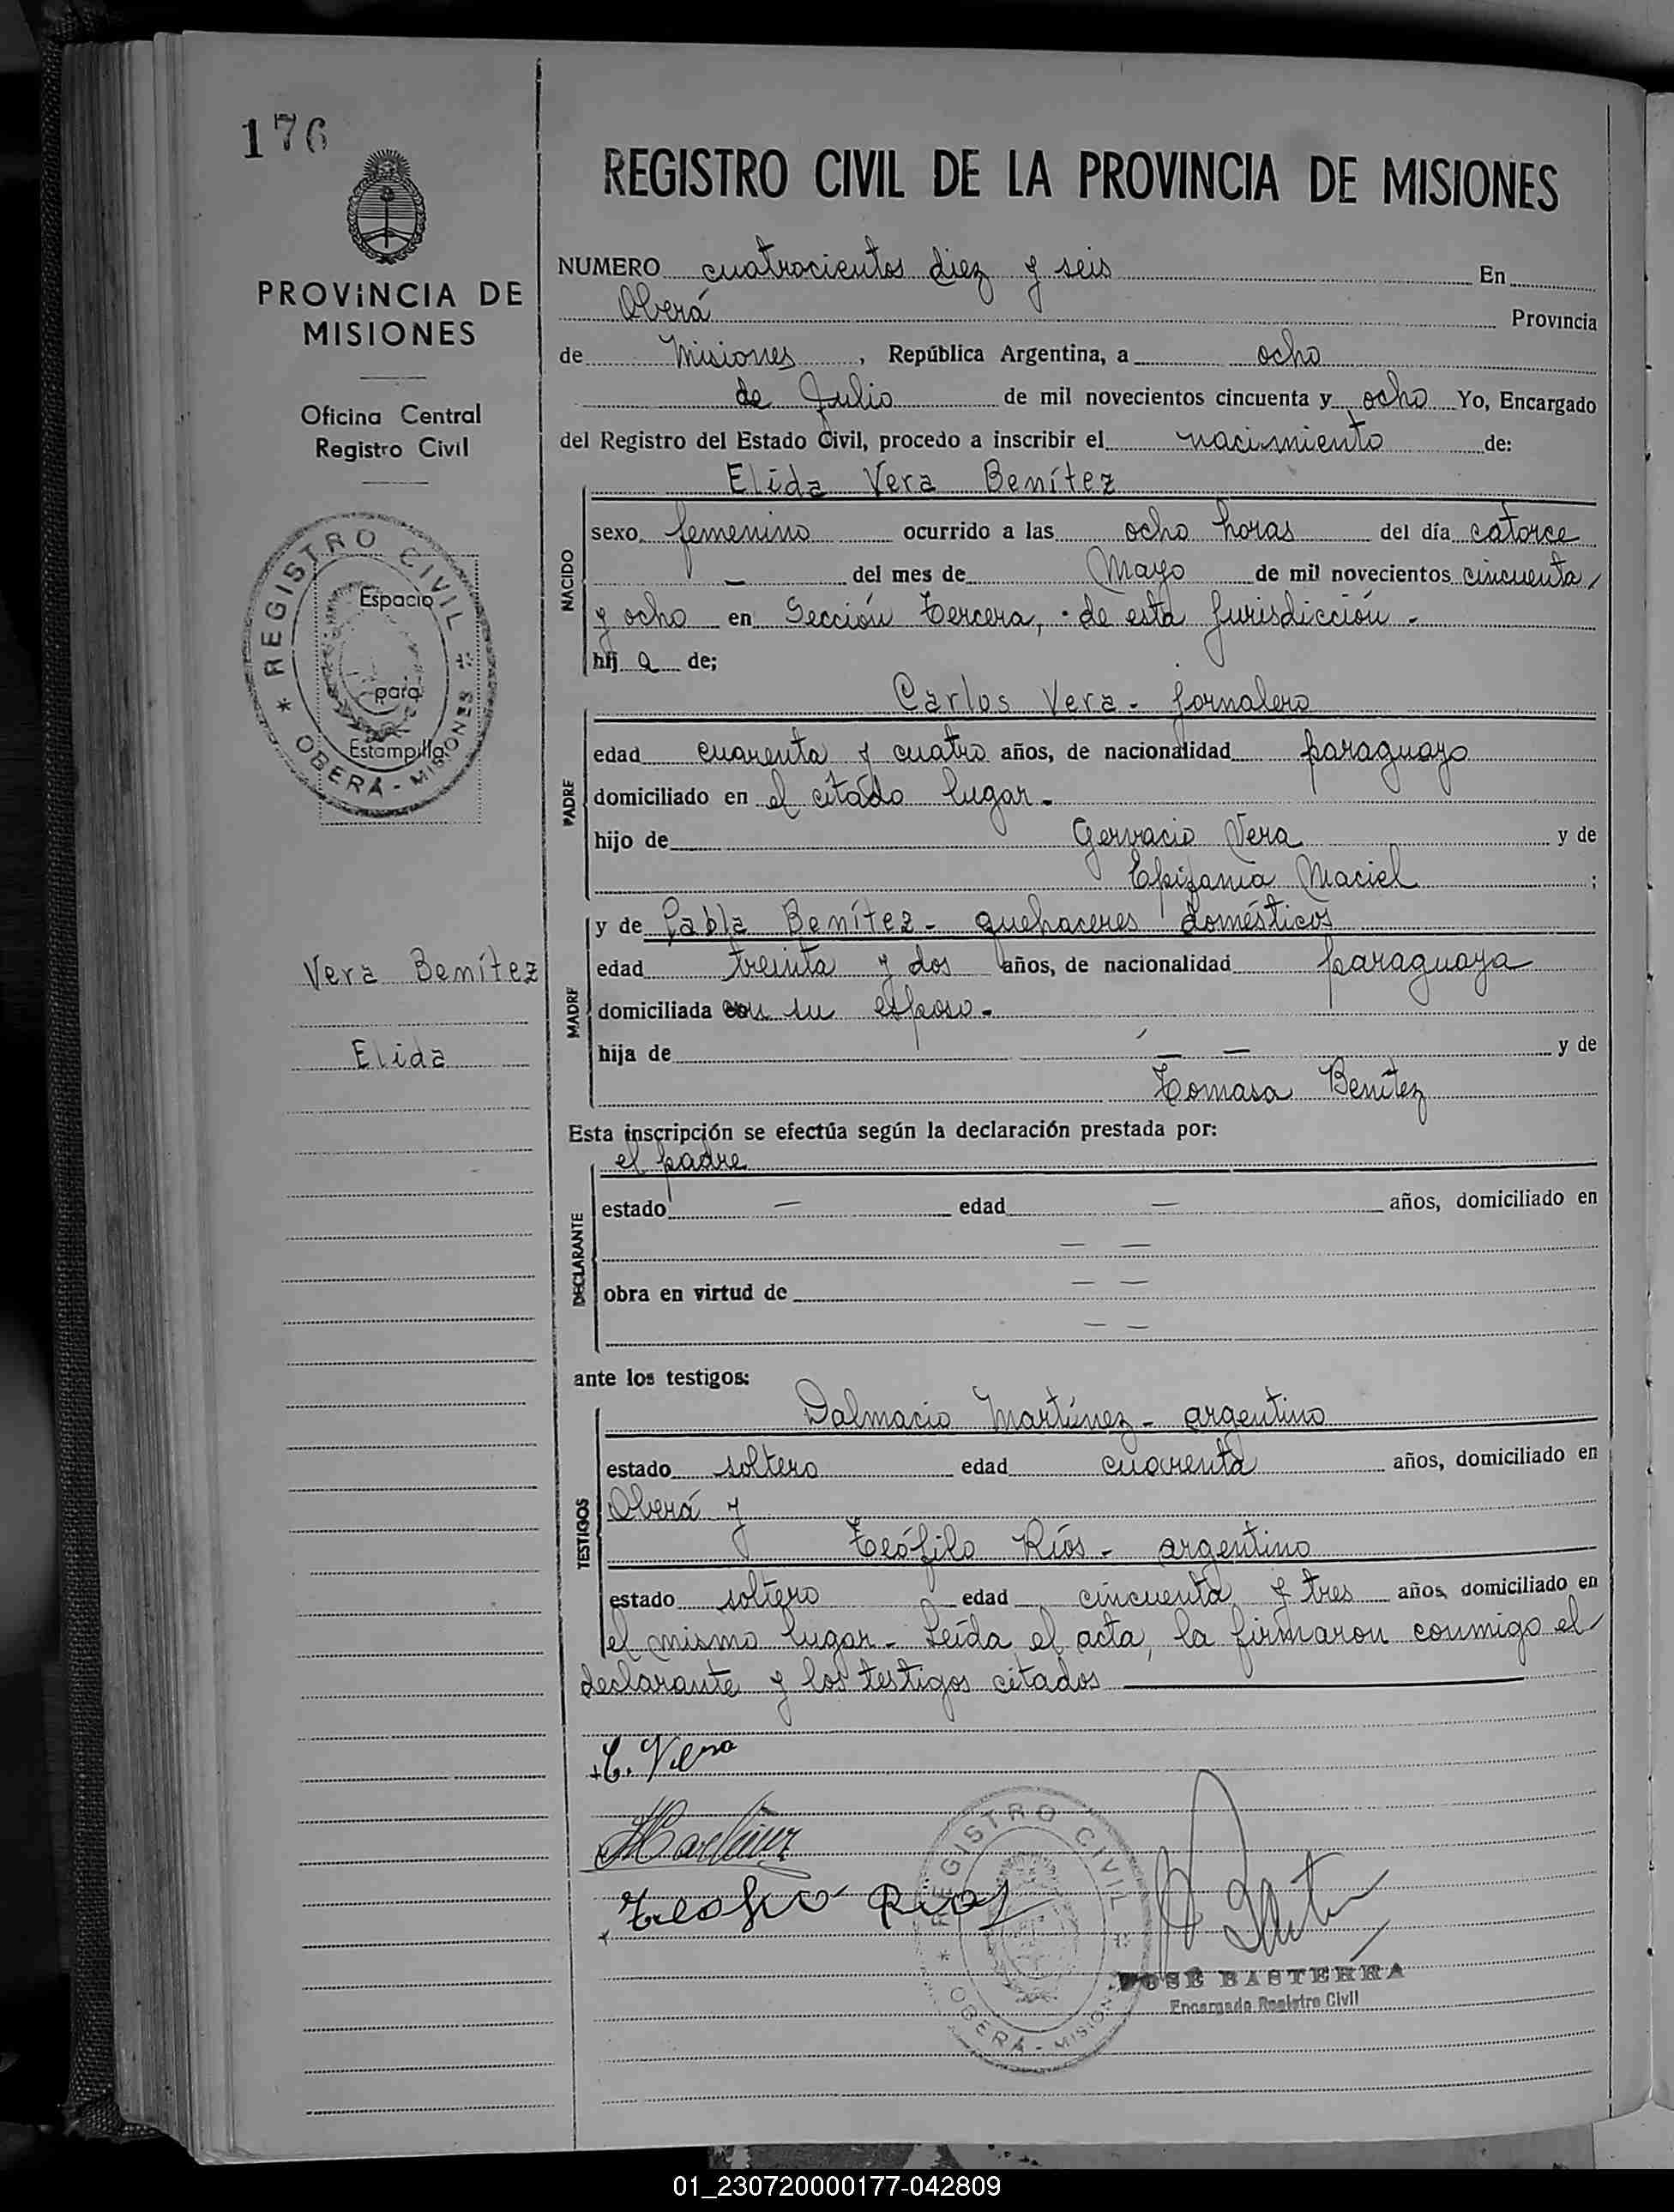 176
PROVINCIA DE
MISIONES
Oficina Central
Registro Civil
* REGISTRO CIVIL *
OBERÁ - MISIONES
Espacio
para
Estampilla
Vera Benítez
Elida
REGISTRO CIVIL DE LA PROVINCIA DE MISIONES
NUMERO cuatrocientos diez y seis En
Oberá Provincia
de Misiones, República Argentina, a ocho
de Julio de mil novecientos cincuenta y ocho Yo, Encargado
del Registro del Estado Civil, procedo a inscribir el nacimiento de:
NACIDO
Elida Vera Benítez
sexo femenino ocurrido a las ocho horas del día catorce
— del mes de Mayo de mil novecientos cincuenta
y ocho en Sección tercera, - de esta Jurisdicción -
hij a de;
PADRE
Carlos Vera - Jornalero
edad cuarenta y cuatro años, de nacionalidad paraguayo
domiciliado en el citado lugar -
hijo de Gervacio Vera y de
Epifania Maciel ;
MADRE
y de Pabla Benítez - quehaceres domésticos
edad treinta y dos años, de nacionalidad paraguaya
domiciliada con su esposo -
hija de — — y de
Tomasa Benítez
Esta inscripción se efectúa según la declaración prestada por:
DECLARANTE
el padre
estado — edad — años, domiciliado en
— —
obra en virtud de — —
— —
ante los testigos:
TESTIGOS
Dalmacio Martínez - argentino
estado soltero edad cuarenta años, domiciliado en
Oberá y
Teófilo Ríos - argentino
estado soltero edad cincuenta y tres años, domiciliado en
el mismo lugar - Leída el acta, la firmaron conmigo el
declarante y los testigos citados
C. Vera
Martínez
Teofilo Rios
* REGISTRO CIVIL *
OBERÁ - MISIONES
JOSÉ BASTERRA
Encargado Registro Civil
01_230720000177-042809